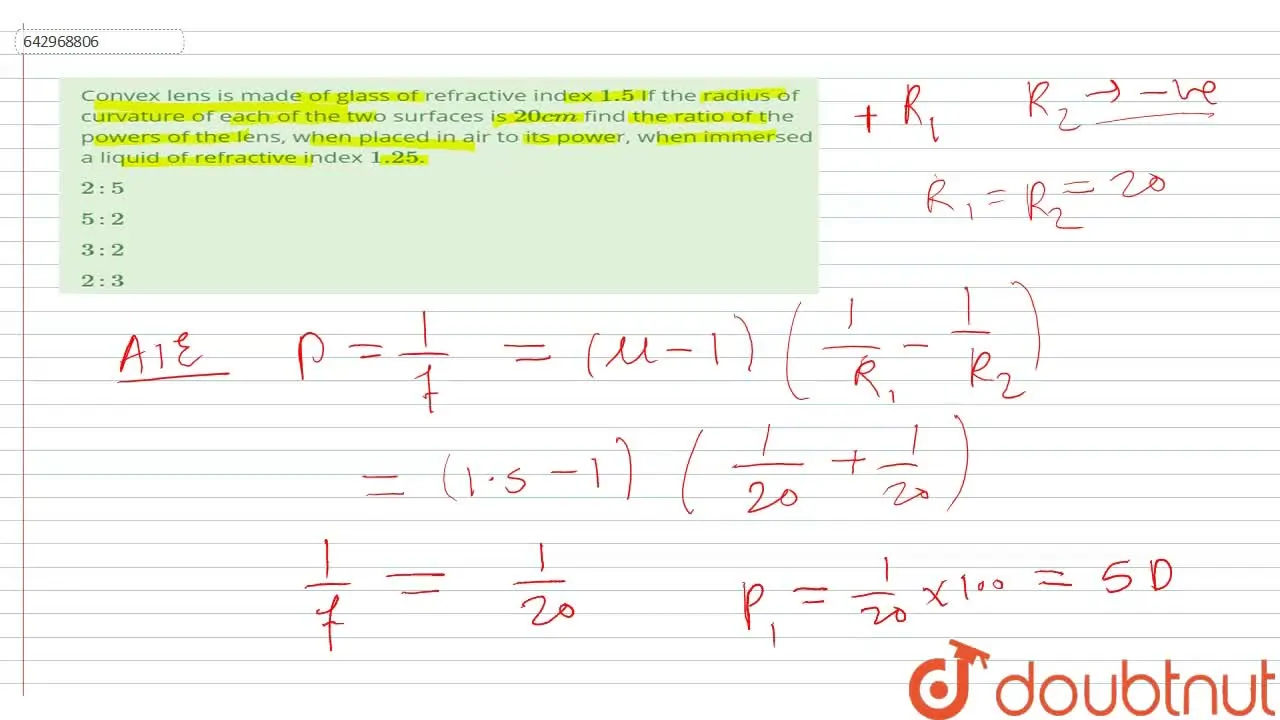 642968806
Convex lens is made of glass of refractive index 1.5 If the radius of
curvature of each of the two surfaces is 20cm find the ratio of the
powers of the lens, when placed in air to its power, when immersed
a liquid of refractive index 1.25.
2 : 5
5 : 2
3 : 2
2 : 3
+ R₁ R₂ → -ve
R₁ = R₂ = 20
AIR P = 1/f = (μ - 1) (1/R₁ - 1/R₂)
= (1.5 - 1) (1/20 + 1/20)
1/f = 1/20 P₁ = 1/20 × 100 = 5 D
doubtnut